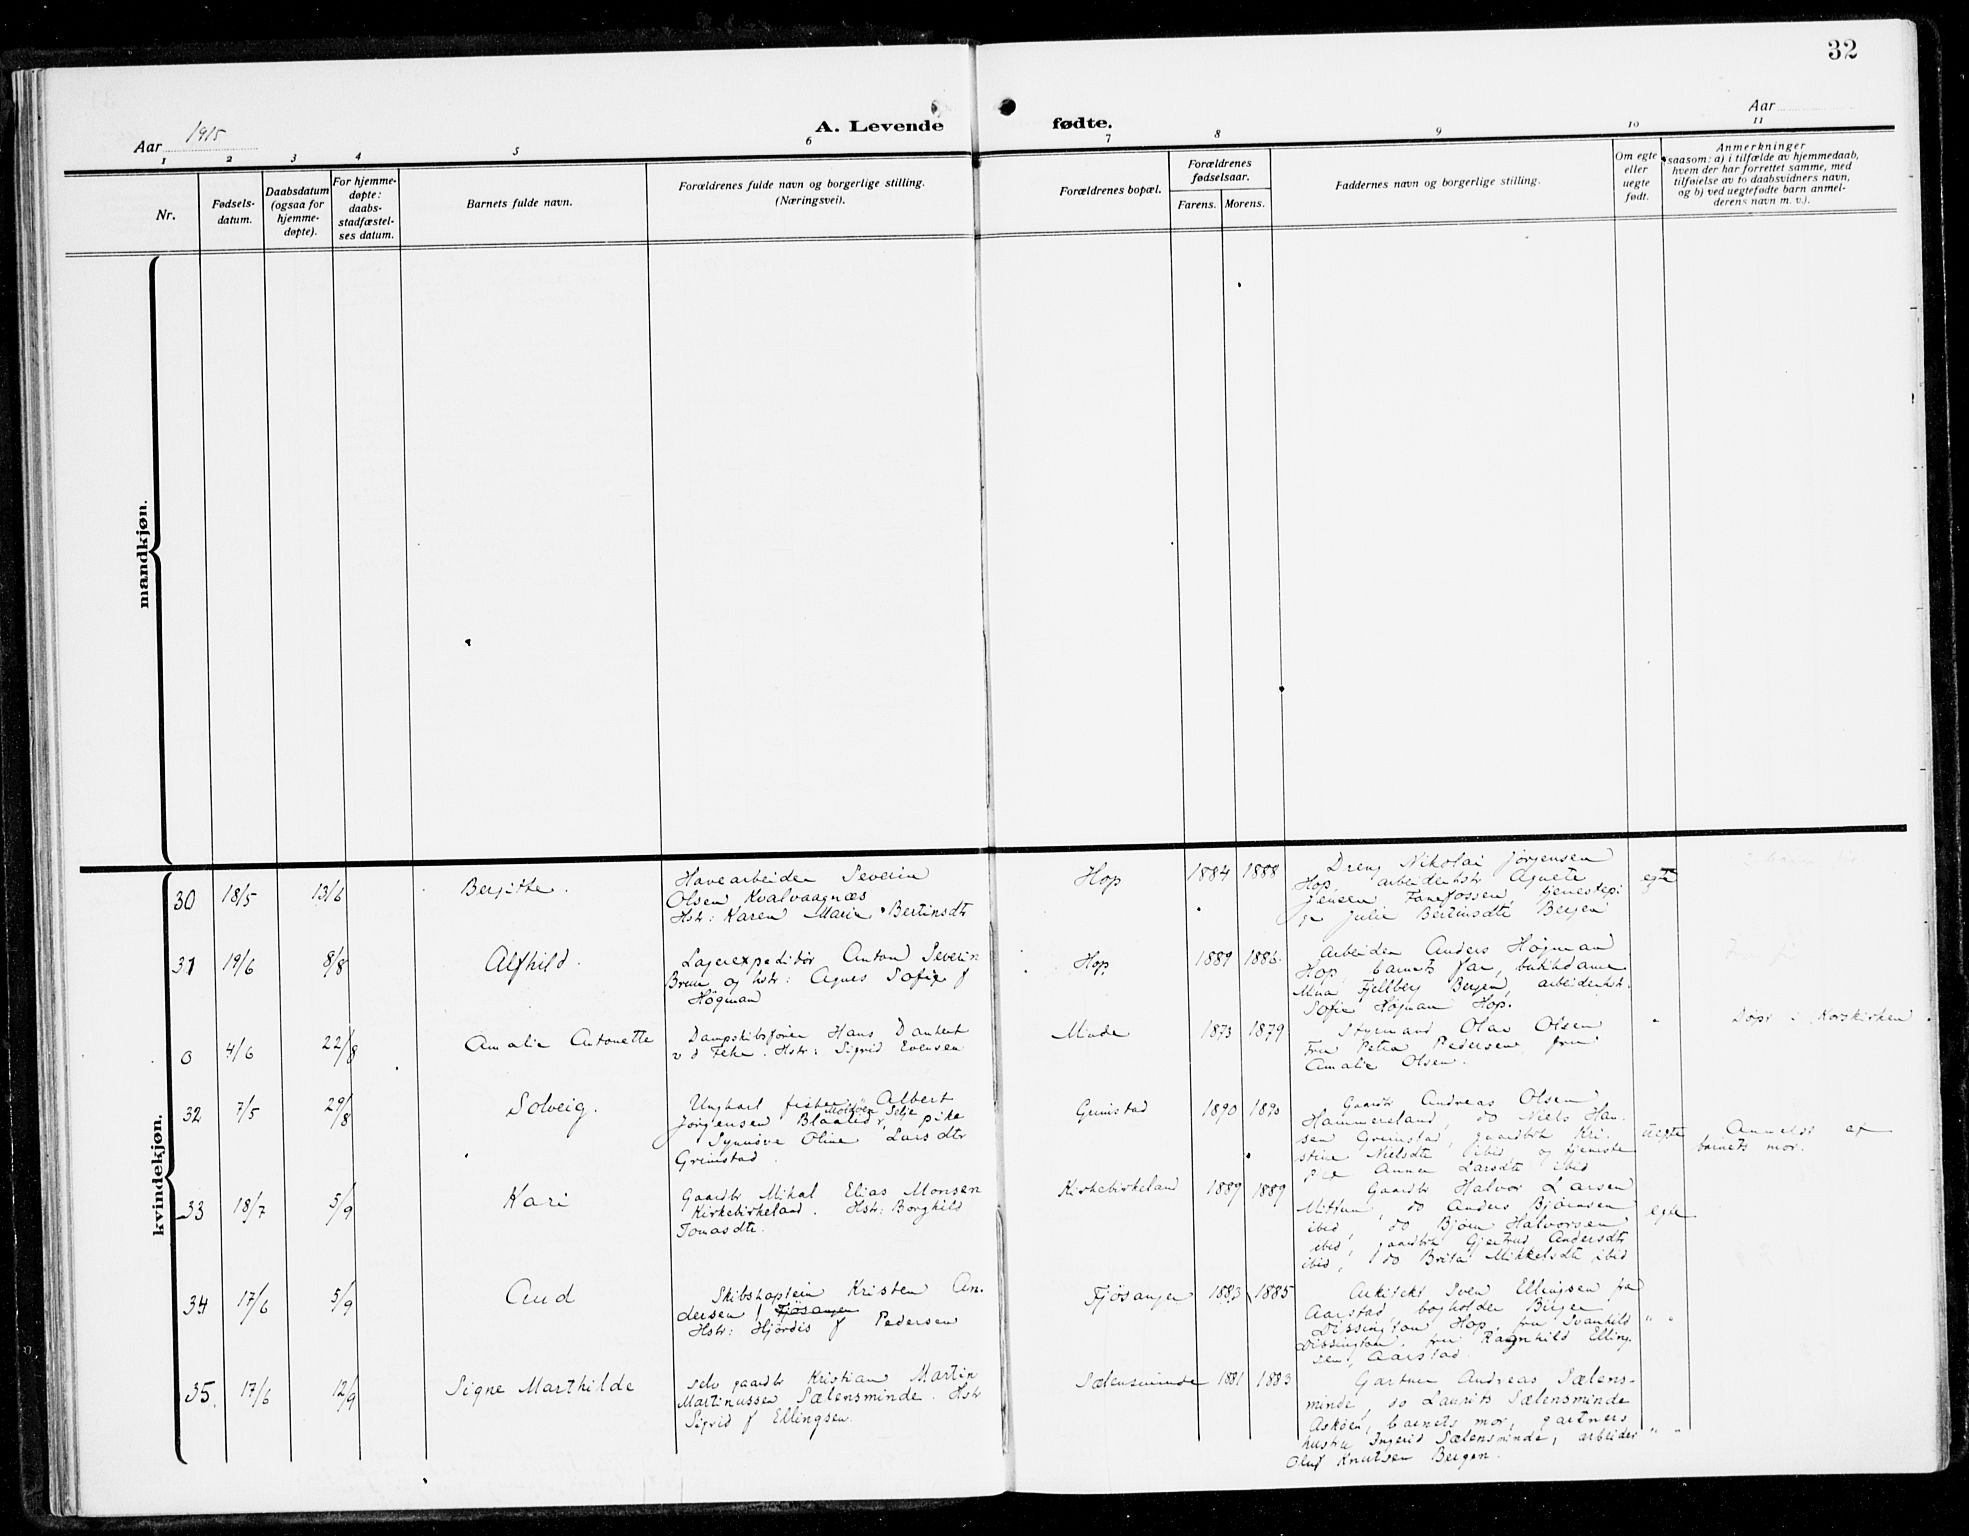 32
Aar 1915
A. Levende fødte.
Aar
1 2 3 4 5 6 7 8 9 10 11
Nr.
Fødsels-
datum.
Daabsdatum
(ogsaa for
hjemme-
døpte).
For hjemme-
døpte:
daabs-
stadfæstel-
ses datum.
Barnets fulde navn.
Forældrenes fulde navn og borgerlige stilling.
(Næringsvei).
Forældrenes bopæl.
Forældrenes
fødselsaar.
Farens. Morens.
Faddernes navn og borgerlige stilling.
Om egte
eller
uegte
født.
Anmerkninger
saasom: a) i tilfælde av hjemmedaab,
hvem der har forrettet samme, med
tilføielse av to daabsvidners navn,
og b) ved uegtefødte barn anmel-
derens navn m. v.).
mandkjøn.
kvindekjøn.
30 18/5 13/6 Bergitte.
Havearbeider Severin
Olsen Kvalvaagnæs
Hstr: Karen Marie Bertinsdtr
Hop 1884 1888
Dreng Nikolai Jørgensen
Hop, arbeiderhstr Agnete
Jensen Fanefossen, tjenestepi-
ge Julie Bertinsdtr Bergen
egte
31 19/6 8/8 Alfhild.
Lagerexpeditør Anton Severin
Brun og hstr: Agnes Sofie f
Høgman
Hop 1889 1886.
Arbeider Anders Høgman
Hop, barnets far, butikdame
Mina Fjellberg Bergen, arbeiderhstr.
Sofie Høgman Hop.
0 4/6 22/8 Amalie Antonette
Dampskibsfører Hans Dankert
Hstr: Sigrid Evensen
Minde 1873 1879
Styrmand Olav Olsen
Fru Petra Pedersen, fru
Amalie Olsen.
"
Døpt i Korskirken
32 7/5 29/8 Solveig.
Ungkarl fisker Albert
Jørgensen Blaalid, Moldøen Selje, pike
Synnøve Oline Larsdtr
Grimstad.
Grimstad 1890 1893
Gaardbr Andreas Olsen
Hammersland, do Niels Han-
sen Grimstad, gaardbrk Kri-
stine Nielsdtr ibid og tjeneste
pie Anna Larsdtr ibid
uegte
Anmeldt af
barnets mor.
33 18/7 5/9 Kari
Gaardbr Mikal Elias Monsen
Kirkebirkeland. Hstr: Borghild
Tomasdtr.
Kirkebirkeland 1889 1889
Gaardbr Halvor Larsen
Mittun, do Anders Bjørnsen
ibid, do Bjørn Halvorsen
ibid, gaardbrk Gjertrud Andersdtr
ibid, do Brita Mikkelsdtr ibid
egte
34 17/6 5/9 Aud
Skibskaptein Kristen An-
dersen, Fjøsanger
Hstr: Hjørdis f Pedersen
Fjøsanger 1883 1885
Arkitekt Sven Ellingsen fra
Aarstad bogholder Birger
Dissington Hop, fru Svanhild
Dissington, fru Ragnhild Elling-
sen, Aarstad
" "
35. 17/6 12/9 Signe Marthilde
selv gaardbr Kristian Martin
Martinussen Sælensminde. Hstr
Sigrid f Ellingsen.
Sælensminde 1881 1883
Gartner Andreas Sælens-
minde, do Laurits Sælensminde
Askøen, barnets mor, gartners
hustru Ingerid Sælensminde, arbeider
Oluf Knutsen Bergen.
" "